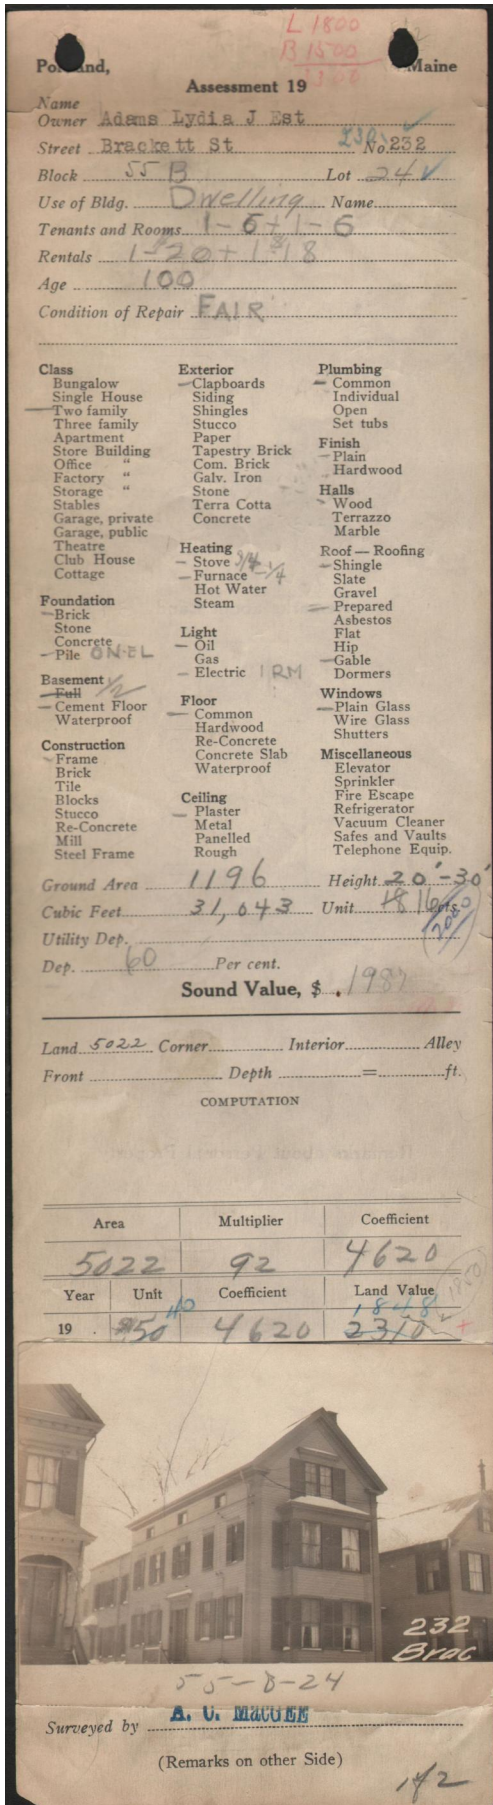 L 1800
B 1500
3300
Portland, Maine
Assessment 19
Name
Owner Adams Lydia J Est
230
Street Brackett St No 232
Block 55 B Lot 24
Use of Bldg. Dwelling Name
Tenants and Rooms 1-6+1-6
Rentals 1-20+1-18
Age 100
Condition of Repair FAIR
Class
Bungalow
Single House
Two family
Three family
Apartment
Store Building
Office "
Factory "
Storage "
Stables
Garage, private
Garage, public
Theatre
Club House
Cottage
Foundation
Brick
Stone
Concrete
Pile ON-EL
Basement
Full 1/2
Cement Floor
Waterproof
Construction
Frame
Brick
Tile
Blocks
Stucco
Re-Concrete
Mill
Steel Frame
Exterior
Clapboards
Siding
Shingles
Stucco
Paper
Tapestry Brick
Com. Brick
Galv. Iron
Stone
Terra Cotta
Concrete
Heating
Stove 3/4
Furnace - 1/4
Hot Water
Steam
Light
Oil
Gas
Electric 1 RM
Floor
Common
Hardwood
Re-Concrete
Concrete Slab
Waterproof
Ceiling
Plaster
Metal
Panelled
Rough
Plumbing
Common
Individual
Open
Set tubs
Finish
Plain
Hardwood
Halls
Wood
Terrazzo
Marble
Roof — Roofing
Shingle
Slate
Gravel
Prepared
Asbestos
Flat
Hip
Gable
Dormers
Windows
Plain Glass
Wire Glass
Shutters
Miscellaneous
Elevator
Sprinkler
Fire Escape
Refrigerator
Vacuum Cleaner
Safes and Vaults
Telephone Equip.
Ground Area 1196 Height 20'-30'
Cubic Feet 31,043 Unit 18 16 cts.
2000
Utility Dep.
Dep. 60 Per cent.
Sound Value, $ 1987
Land 5022 Corner Interior Alley
Front Depth = ft.
COMPUTATION
Area Multiplier Coefficient
5022 92 4620
1850
Year Unit Coefficient Land Value
40 1848
19 . 50 4620 2310
232
Brac
55-B-24
Surveyed by A. C. MacGEE
(Remarks on other Side)
1 of 2